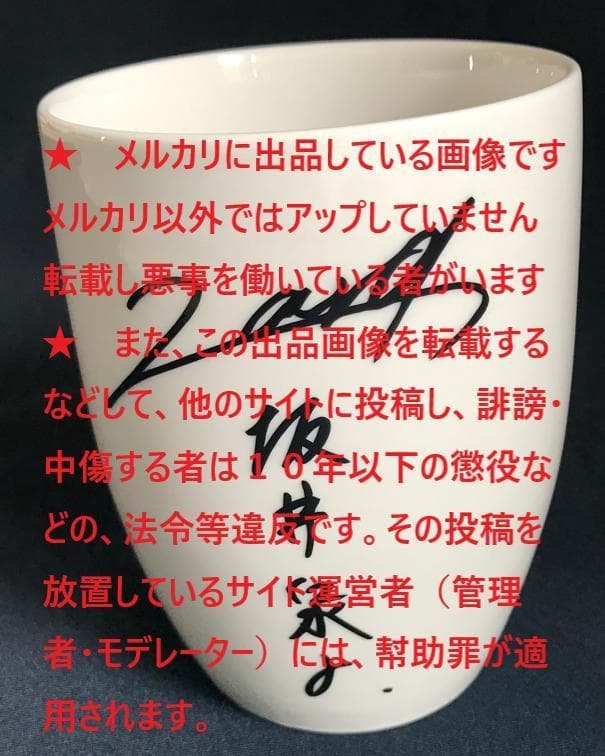 ★　メルカリに出品している画像です
メルカリ以外ではアップしていません
転載し悪事を働いている者がいます
★　また、この出品画像を転載する
などして、他のサイトに投稿し、誹謗・
中傷する者は１０年以下の懲役な
どの、法令等違反です。その投稿を
放置しているサイト運営者（管理
者・モデレーター）には、幇助罪が適
用されます。
Zard
坂
井
泉
水